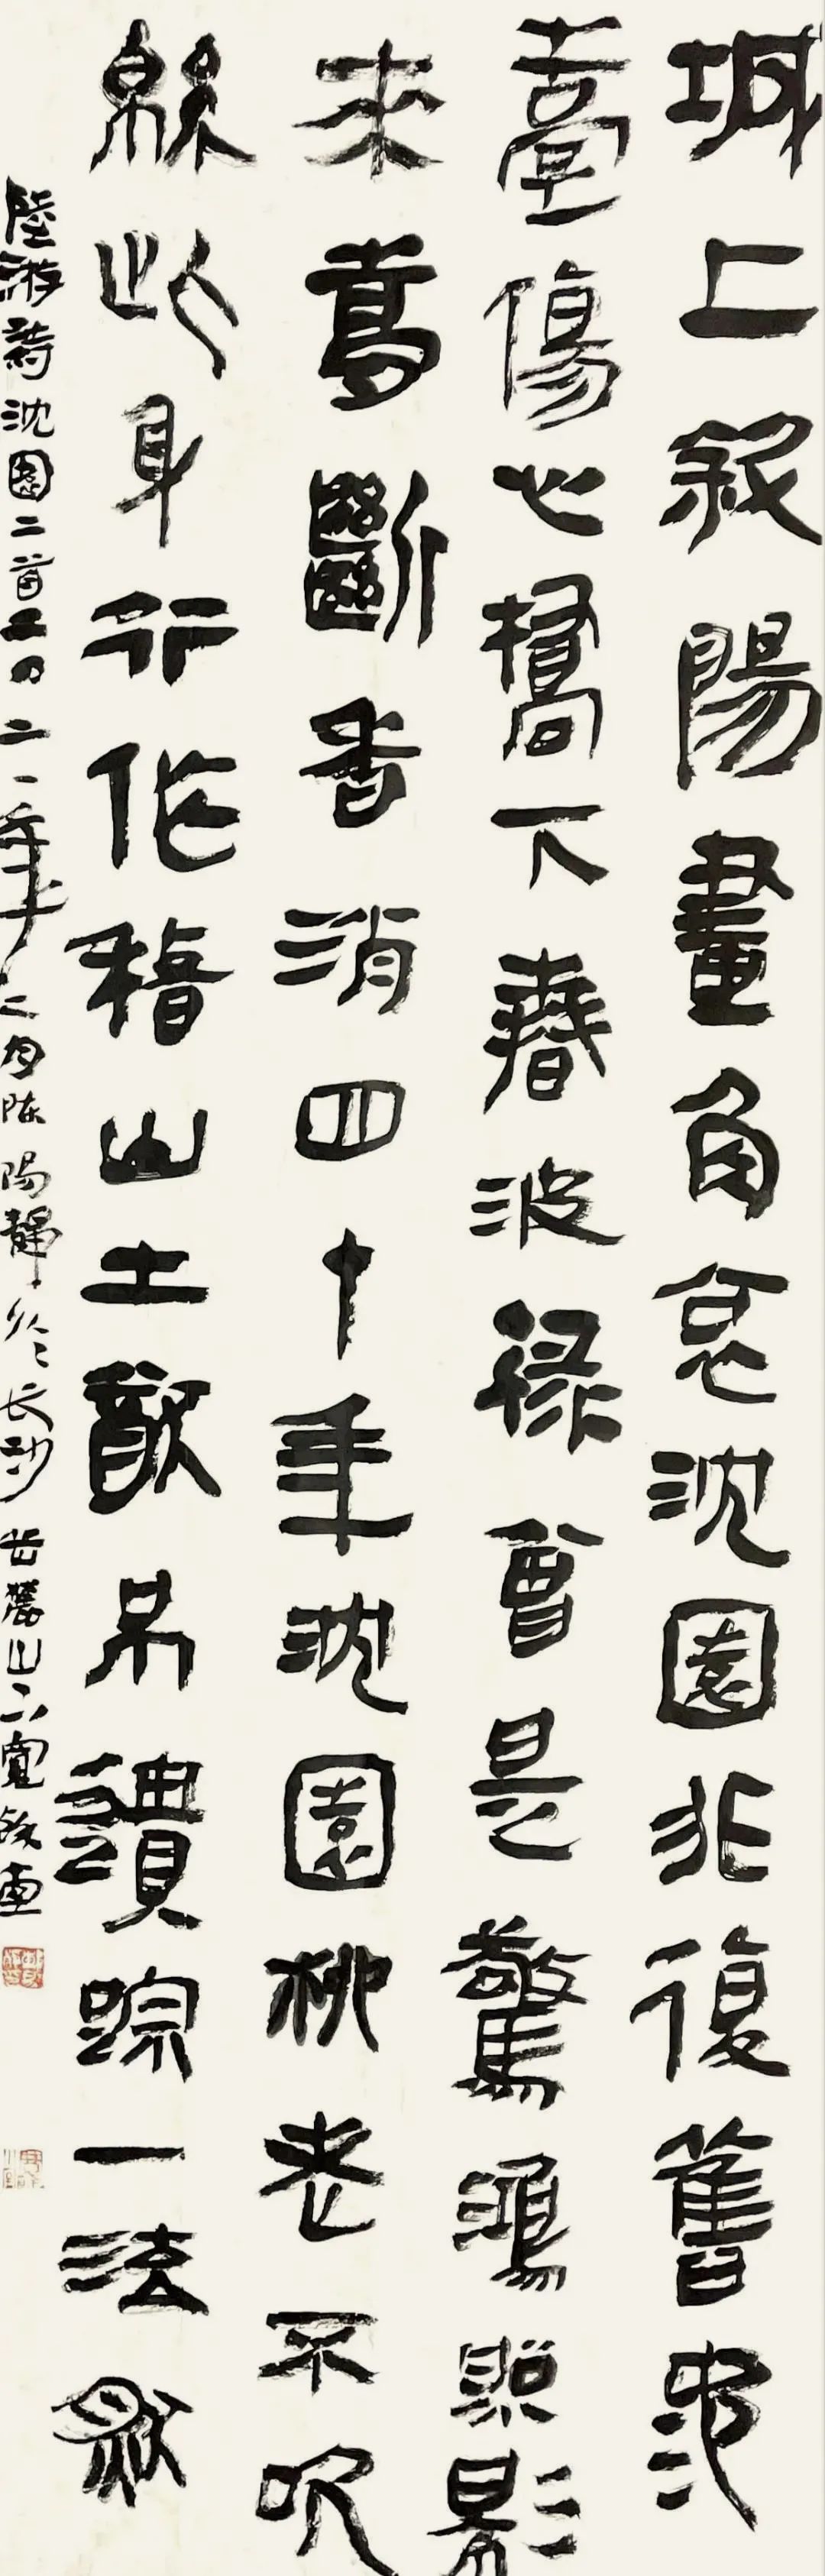 城上斜陽畫角哀沈園非復舊池
臺傷心橋下春波綠曾是驚鴻照影
來夢斷香消四十年沈園柳老不吹
綿此身行作稽山土猶吊遺踪一泫然
陸游詩沈園二首二〇二一年十二月陽靜於长沙岳麓山下